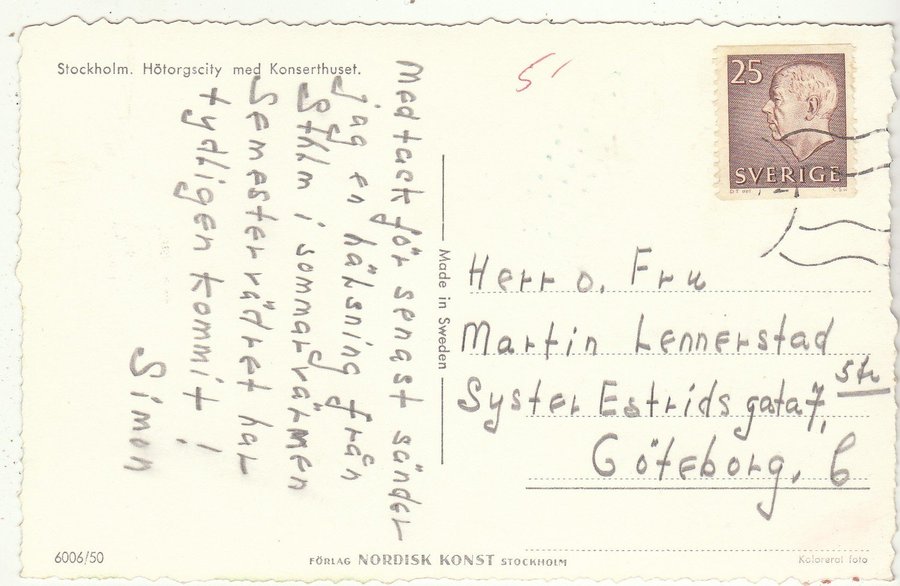 Stockholm. Hötorgscity med Konserthuset.
Med tack för senast sänder
jag en hälsning från
Sthlm i sommarvärmen
Semestervädret har
tydligen kommit!
Simon
Made in Sweden
5'
25
SVERIGE
Herr o. Fru
Martin Lennerstad
Syster Estrids gata 7, 5tr
Göteborg, C
6006/50
FÖRLAG NORDISK KONST STOCKHOLM
Kolorerat foto